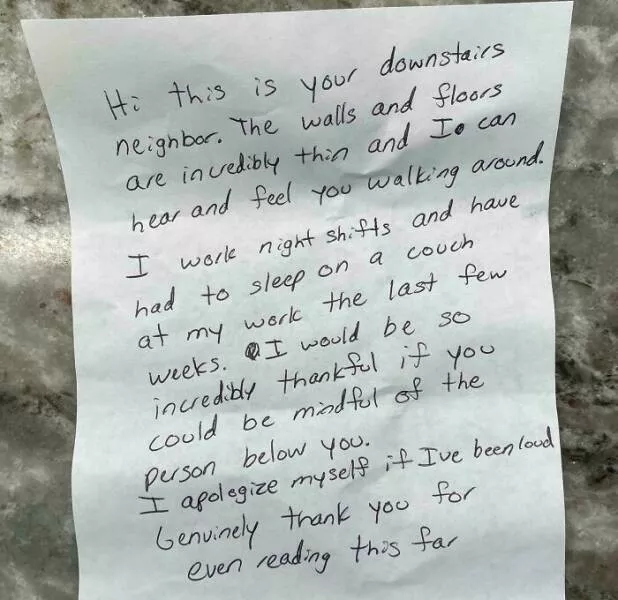 Hi this is your downstairs
neighbor. The walls and floors
are incredibly thin and I can
hear and feel you walking around.
I work night shifts and have
had to sleep on a couch
at my work the last few
weeks. I would be so
incredibly thankful if you
could be mindful of the
person below you.
I apologize myself if I've been loud
Genuinely thank you for
even reading this far